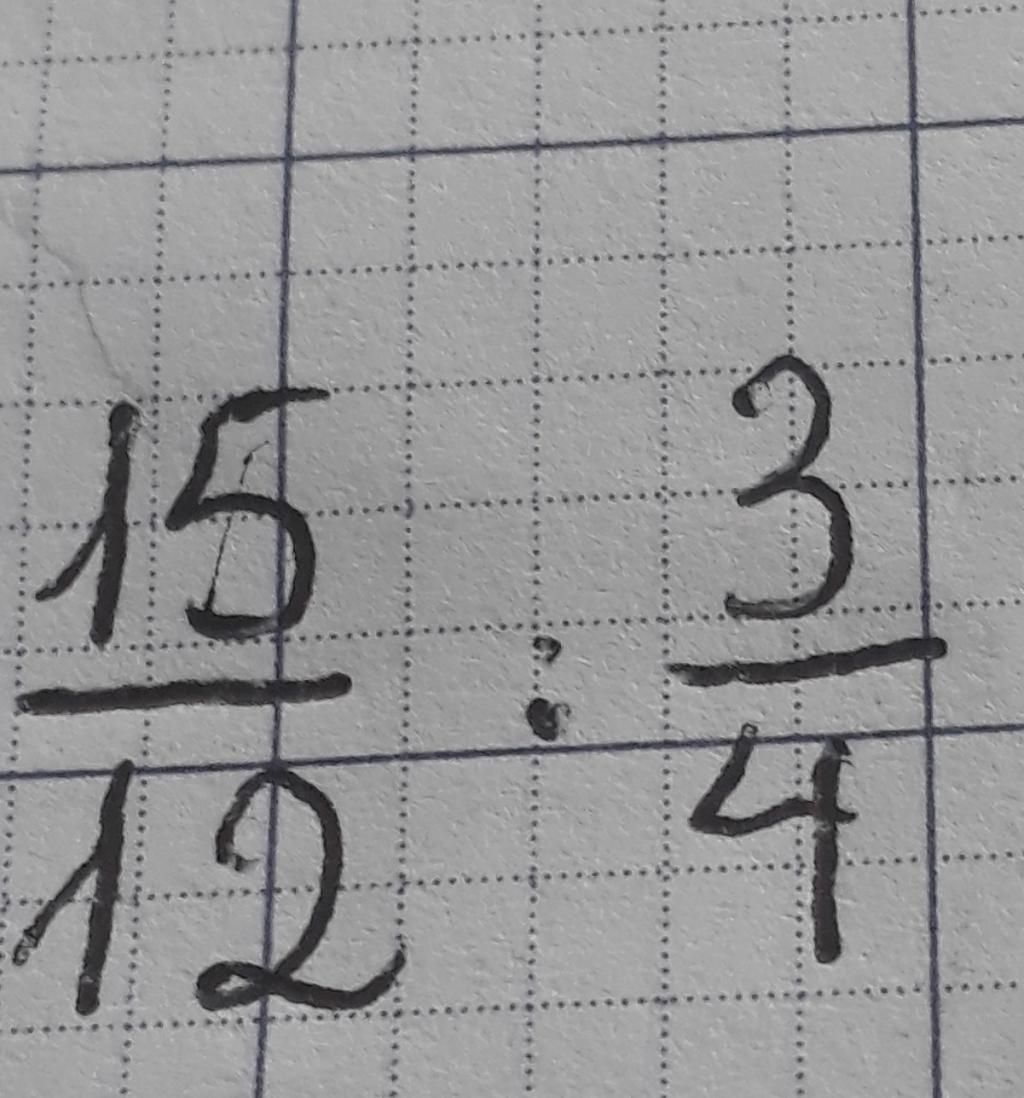 15/12 : 3/4